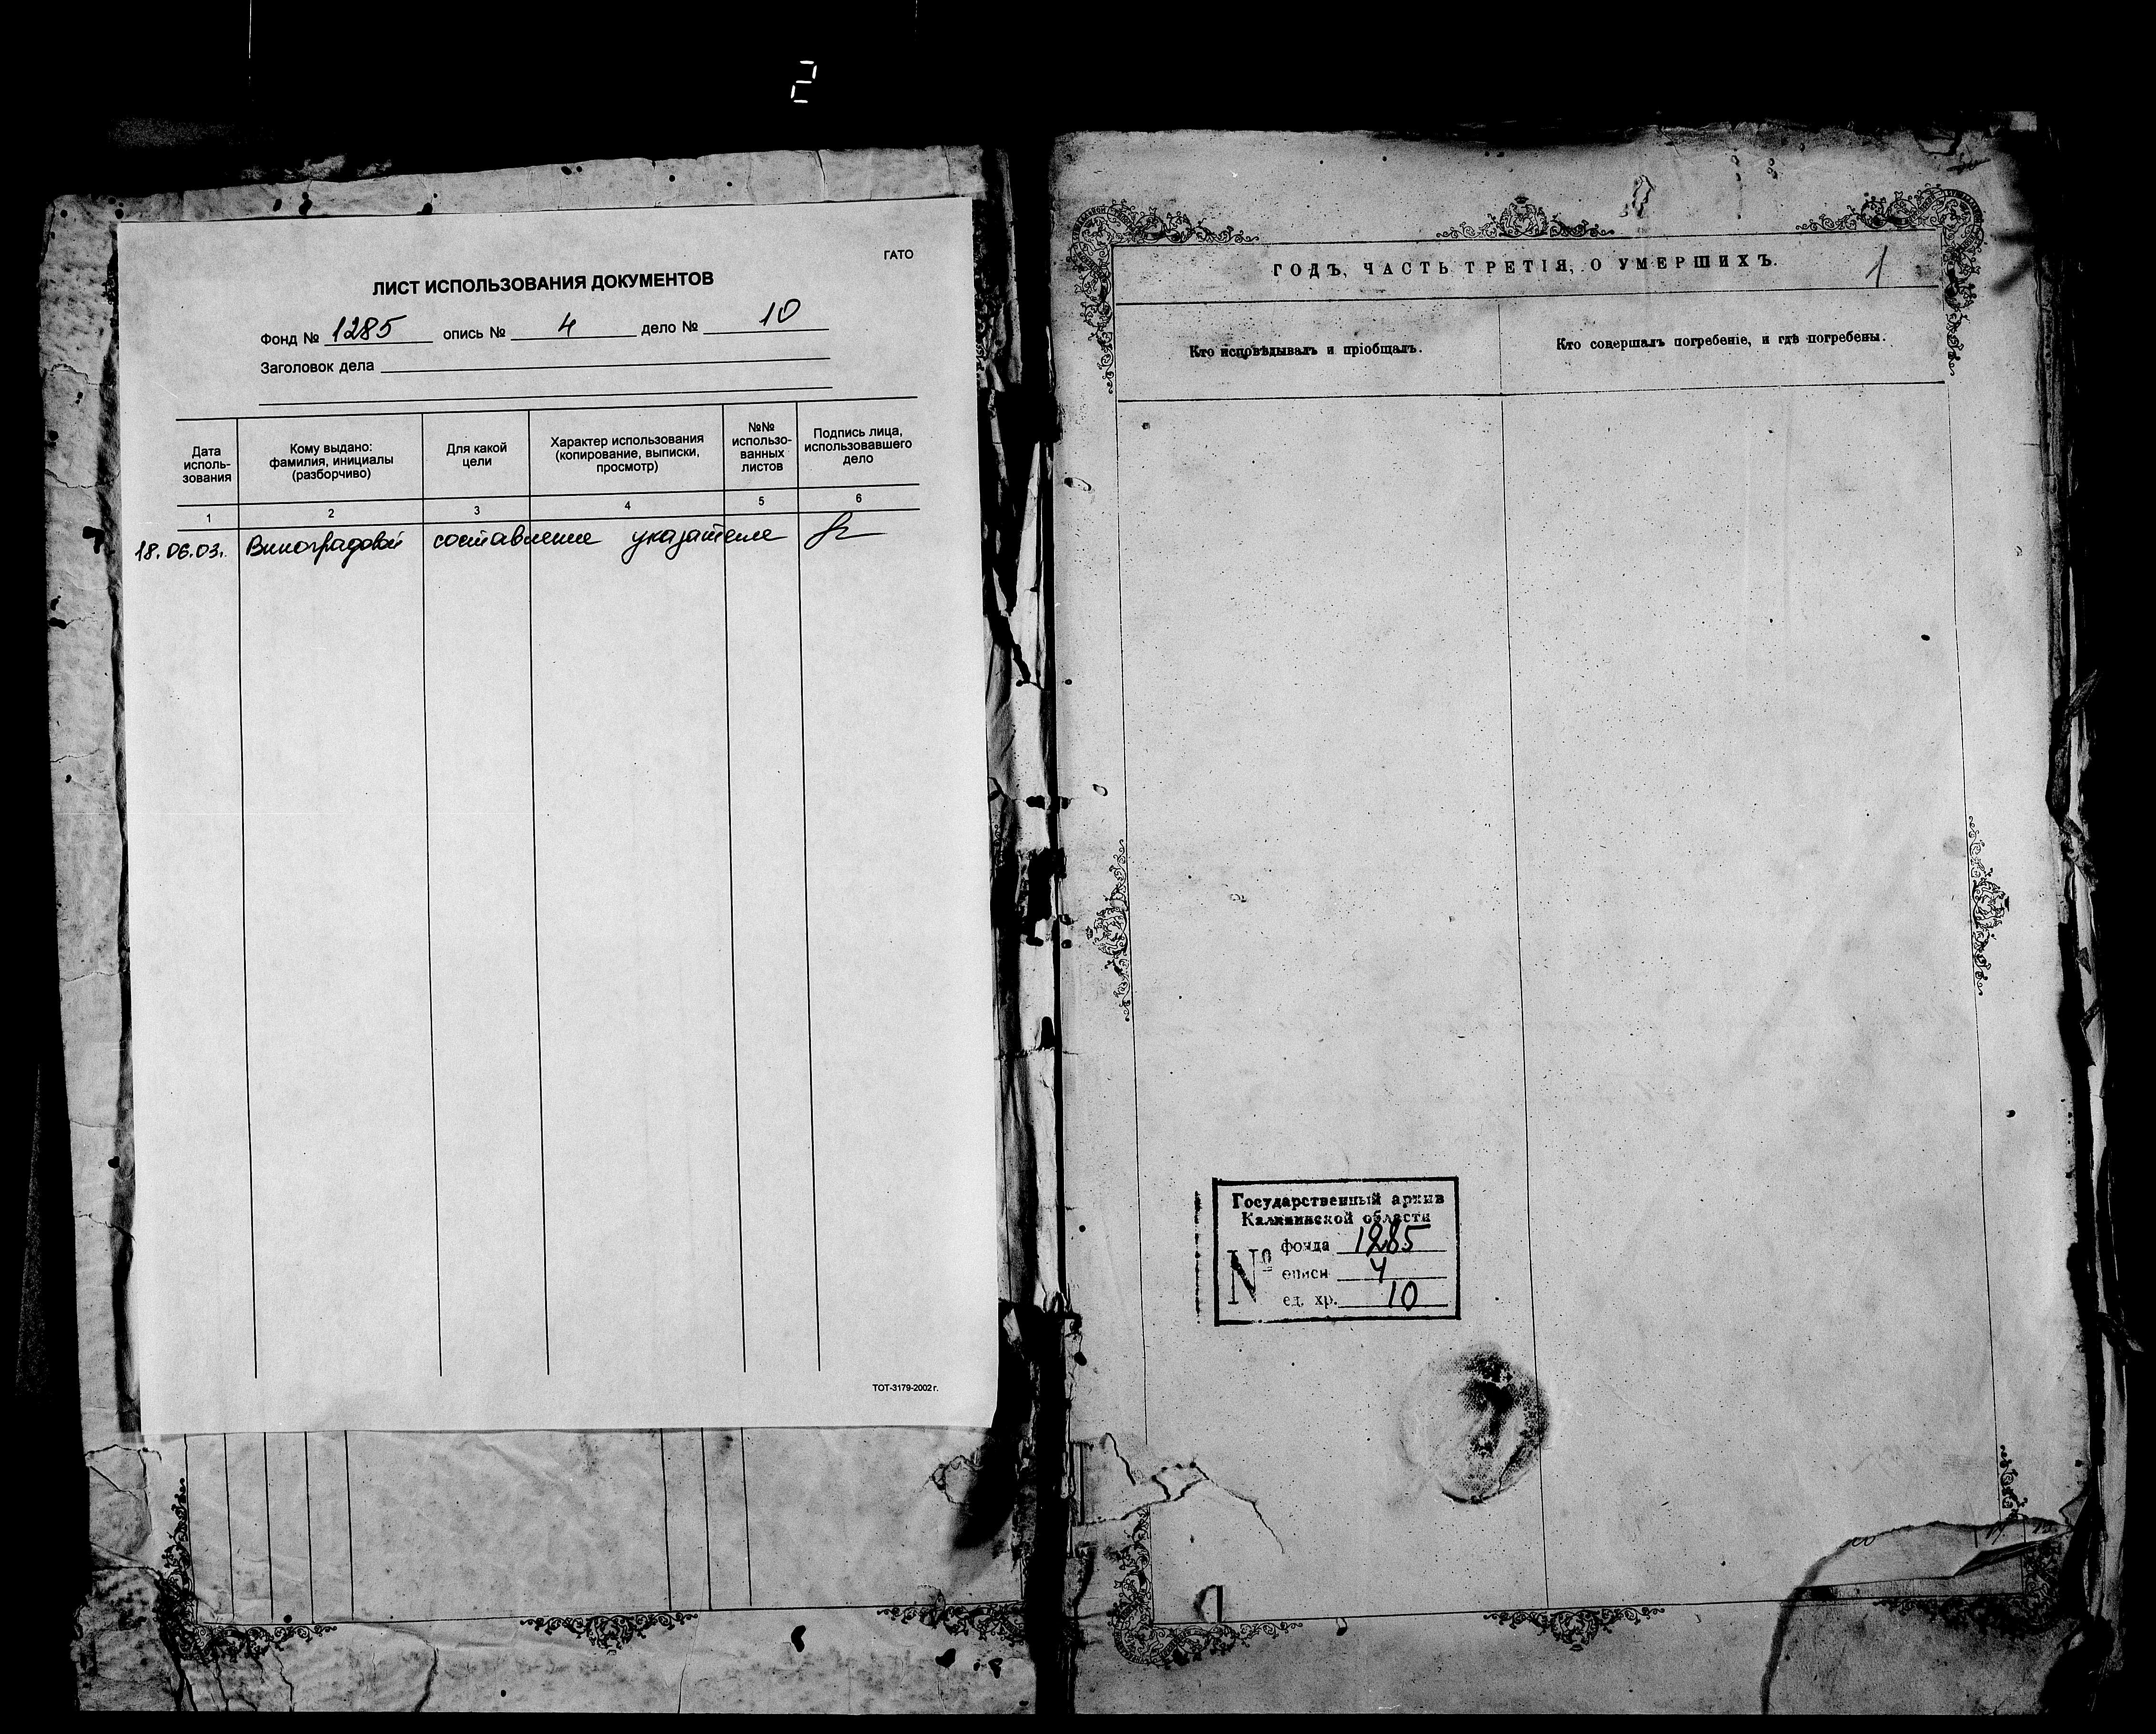 2
ГАТО
ЛИСТ ИСПОЛЬЗОВАНИЯ ДОКУМЕНТОВ
Фонд № 1285 опись № 4 дело № 10
Заголовок дела
Дата исполь-зования
Кому выдано: фамилия, инициалы (разборчиво)
Для какой цели
Характер использования (копирование, выписки, просмотр)
№№ использо-ванных листов
Подпись лица, использовавшего дело
1 2 3 4 5 6
18.06.03. Виноградовой составление указателя
ТОТ-3179-2002 г.
ГОДЪ, ЧАСТЬ ТРЕТІЯ, О УМЕРШИХЪ. 1
Кто исповѣдывалъ и пріобщалъ.
Кто совершалъ погребеніе, и гдѣ погребены.
Государственный архив
Калининской области
№ фонда 1285
описи 4
ед. хр. 10